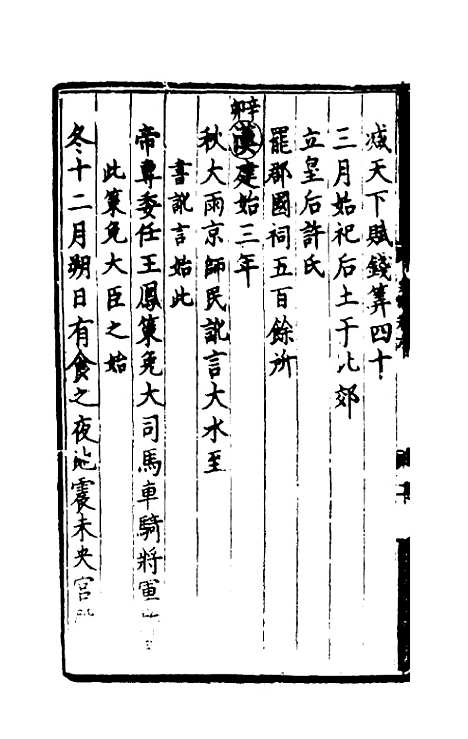 減天下賦錢筭四十
三月始祀后土于北郊
立皇后許氏
罷郡國祠五百餘所
漢建始三年
秋大雨京師民訛言大水至
書訛言始此
帝專委任王鳳策免大司馬車騎將軍
此策免大臣之始
冬十二月朔日有食之夜地震未央宮